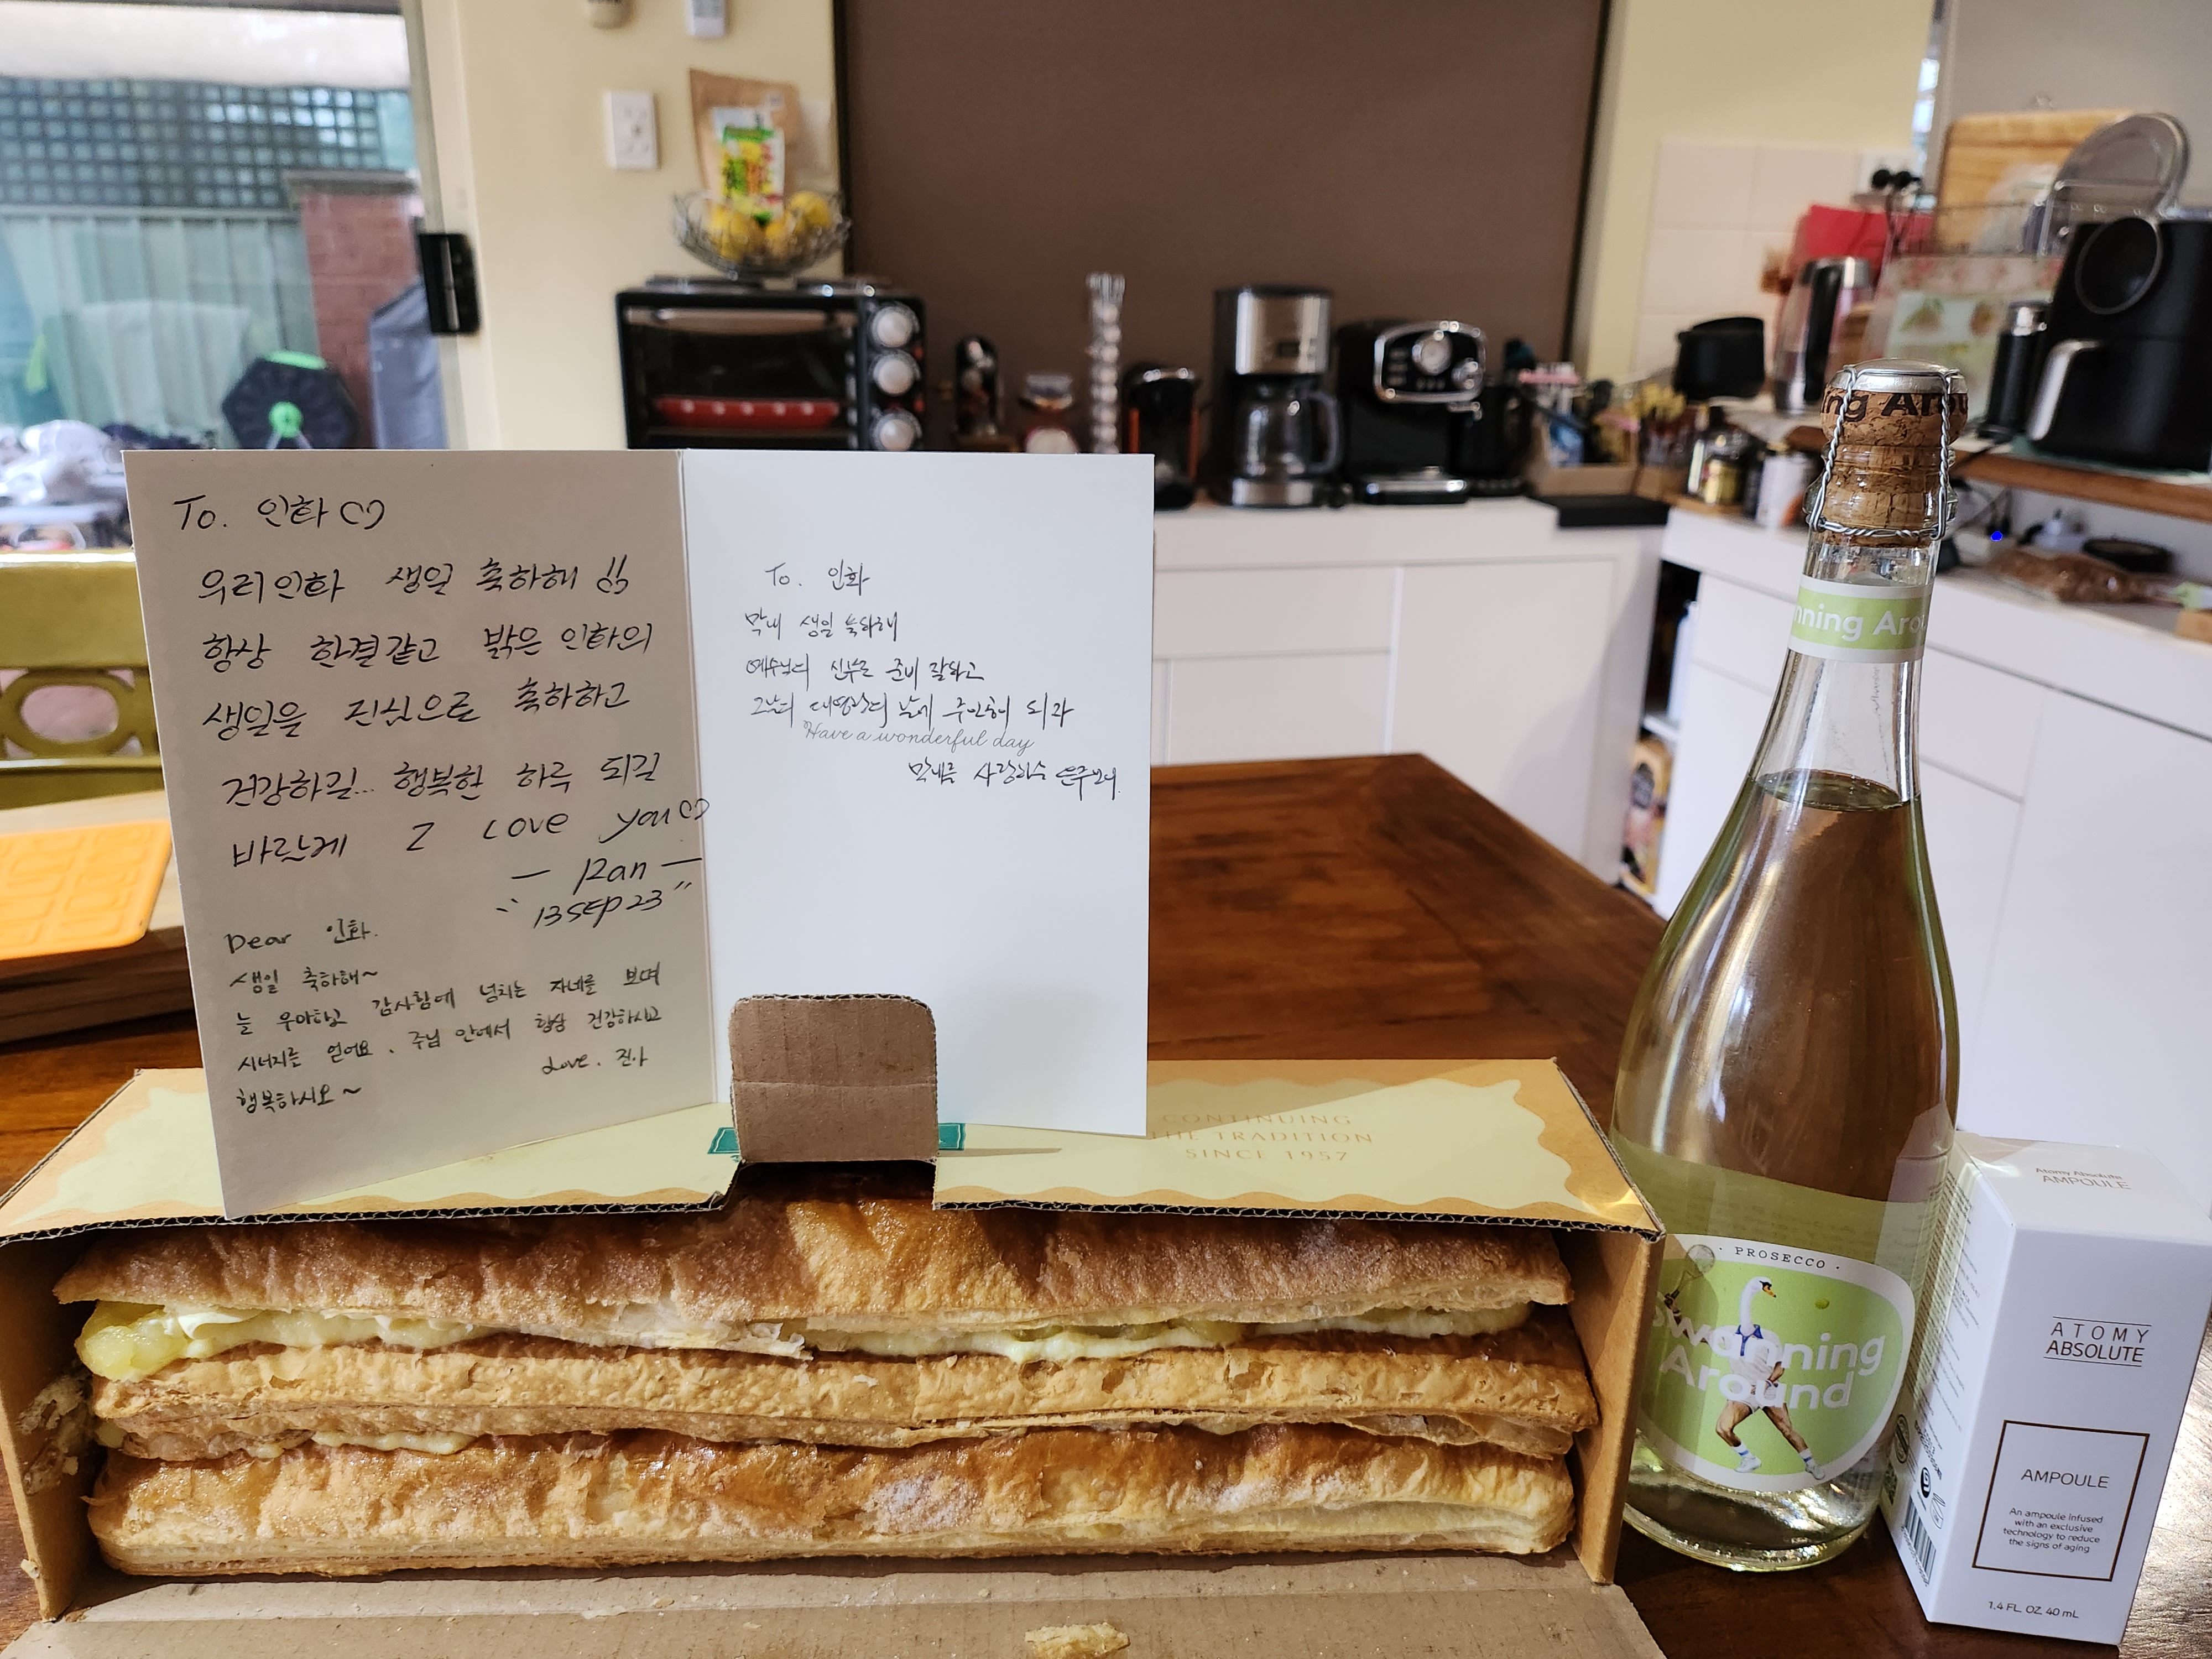 To. 인화♡
우리인화 생일 축하해 !!
항상 한결같고 밝은 인화의
생일을 진심으로 축하하고
건강하길... 행복한 하루 되길
바랄게 I Love you♡
— Ran —
"13 SEP 23"
Dear 인화.
생일 축하해~
늘 우아하고 감사함에 넘치는 자네를 보며
시너지를 얻어요. 주님 안에서 항상 건강하시고
행복하시오~
Love. 진아
To. 인화
막내 생일 축하해
예수님의 신부로 준비 잘하고
그날의 대영광의 날에 주인공이 되라
Have a wonderful day
막내를 사랑하는
CONTINUING
THE TRADITION
SINCE 1957
ng Arou
nning Arou
· PROSECCO ·
Swanning
Around
Atomy Absolute
AMPOULE
ATOMY
ABSOLUTE
AMPOULE
An ampoule infused
with an exclusive
technology to reduce
the signs of aging
1.4 FL. OZ. 40 mL